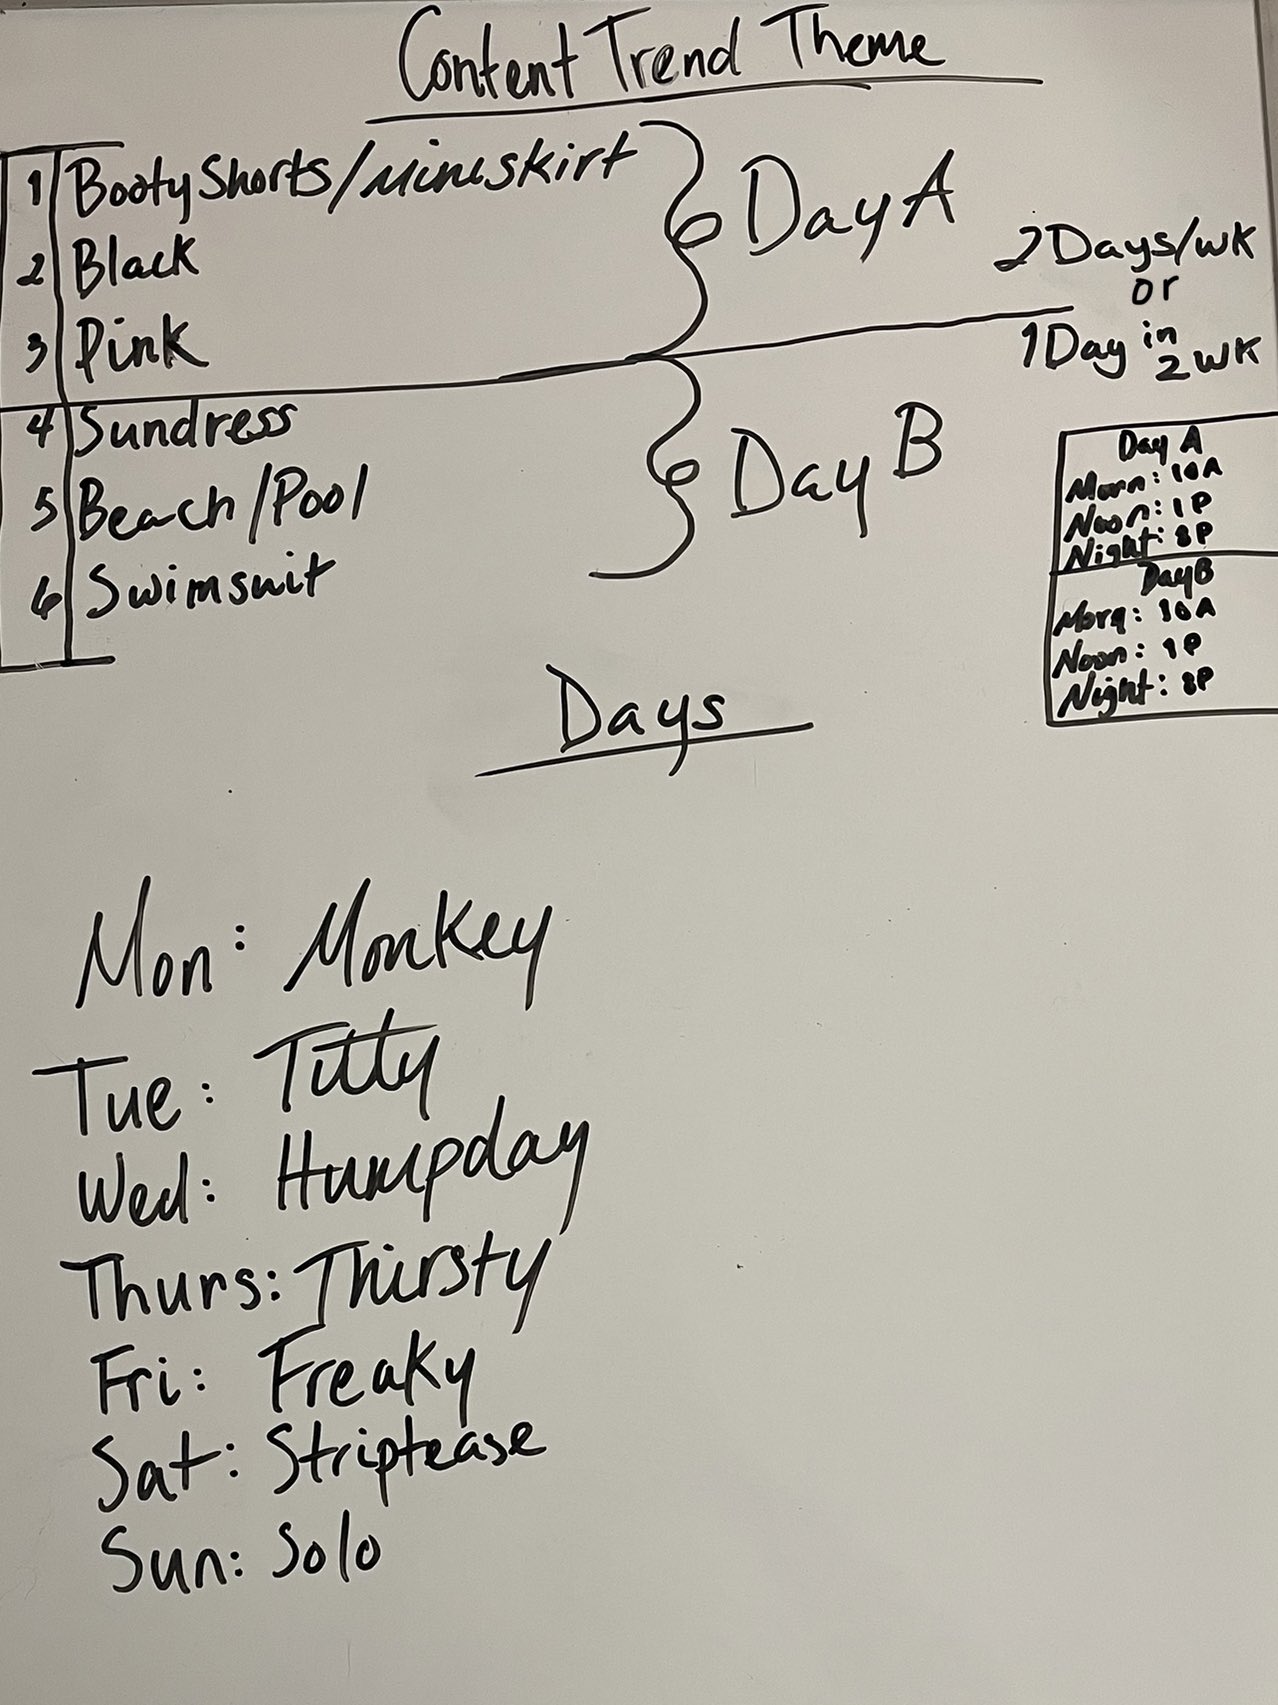 Content Trend Theme
1 Booty Shorts/Miniskirt
2 Black
3 Pink
Day A
4 Sundress
5 Beach/Pool
6 Swimsuit
Day B
2 Days/wk
or
1 Day in
2 wk
Day A
Morn: 10A
Noon: 1P
Night: 8P
Day B
Morn: 10A
Noon: 1P
Night: 8P
Days
Mon: Monkey
Tue: Titty
Wed: Humpday
Thurs: Thirsty
Fri: Freaky
Sat: Striptease
Sun: Solo